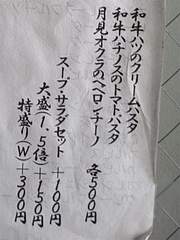 和牛ハツのクリームパスタ
和牛ハチノスのトマトパスタ
月見オクラのペペロンチーノ
各500円
スープ・サラダセット +100円
大盛(1、5倍) +150円
特盛り(W) +300円